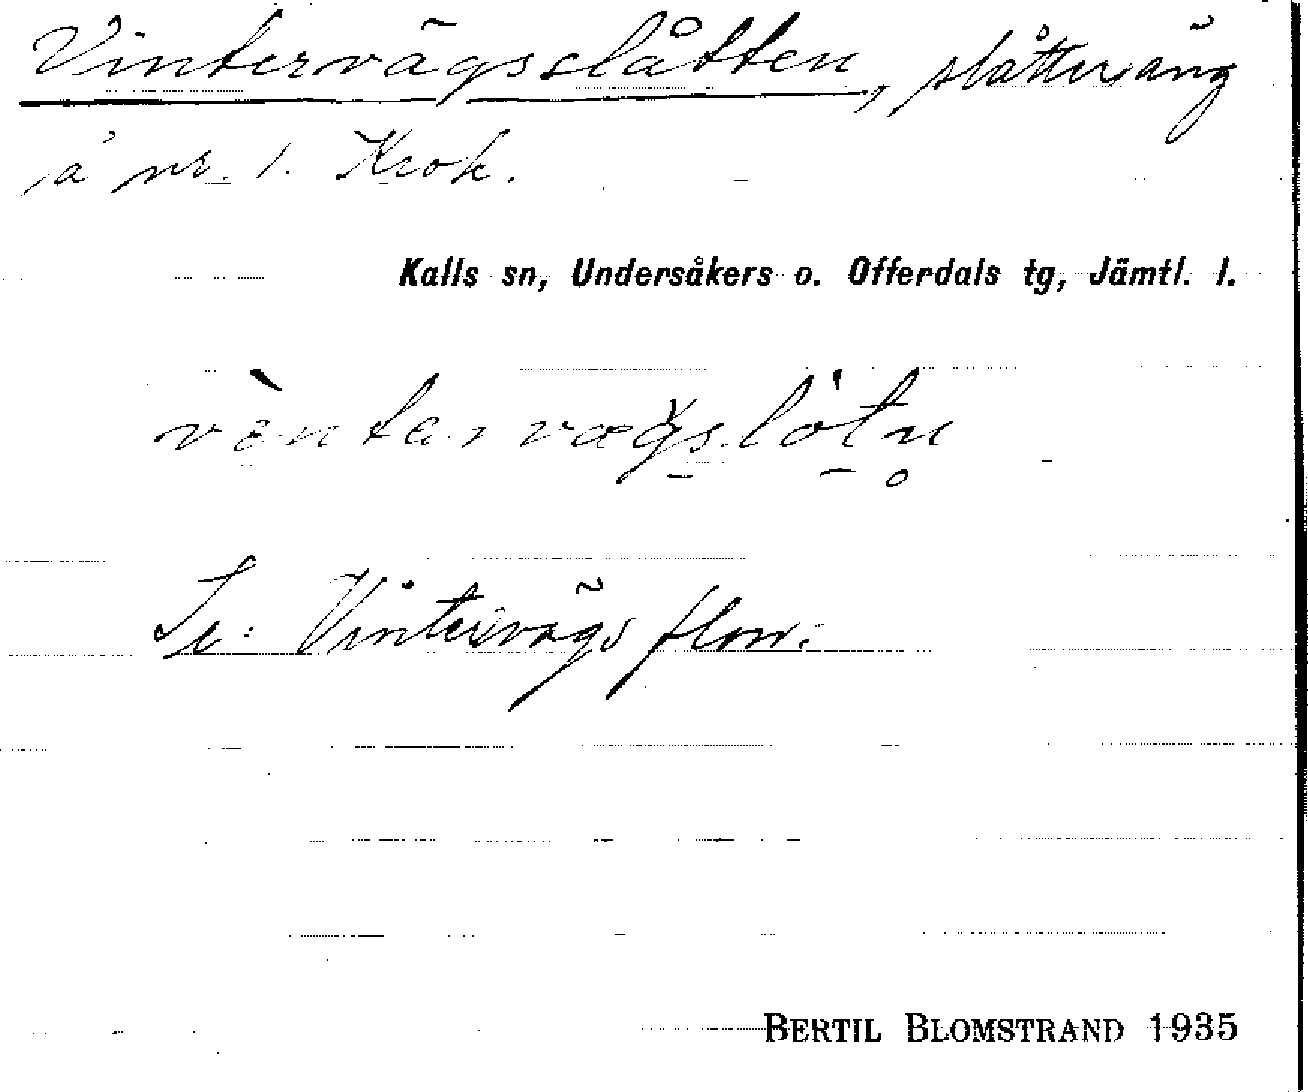 Vintervägsslåtten, slåtteräng
å nr. 1. Krok.
Kalls sn, Undersåkers o. Offerdals tg, Jämtl. l.
Se: Vintervägsflon.
BERTIL BLOMSTRAND 1935